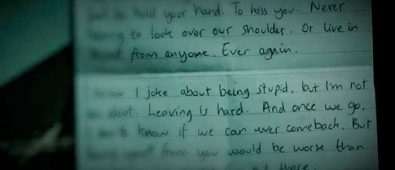 hold your hand. To kiss you. Never
to look over our shoulder. Or live in
from anyone. Ever again.
I know I joke about being stupid, but I'm not
idiot. Leaving is hard. And once we go,
know if we can ever comeback. But
from you would be worse than